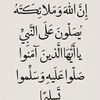 إِنَّ اللَّهَ وَمَلَائِكَتَهُ
يُصَلُّونَ عَلَى النَّبِيِّ
يَا أَيُّهَا الَّذِينَ آمَنُوا
صَلُّوا عَلَيْهِ وَسَلِّمُوا
تَسْلِيمًا